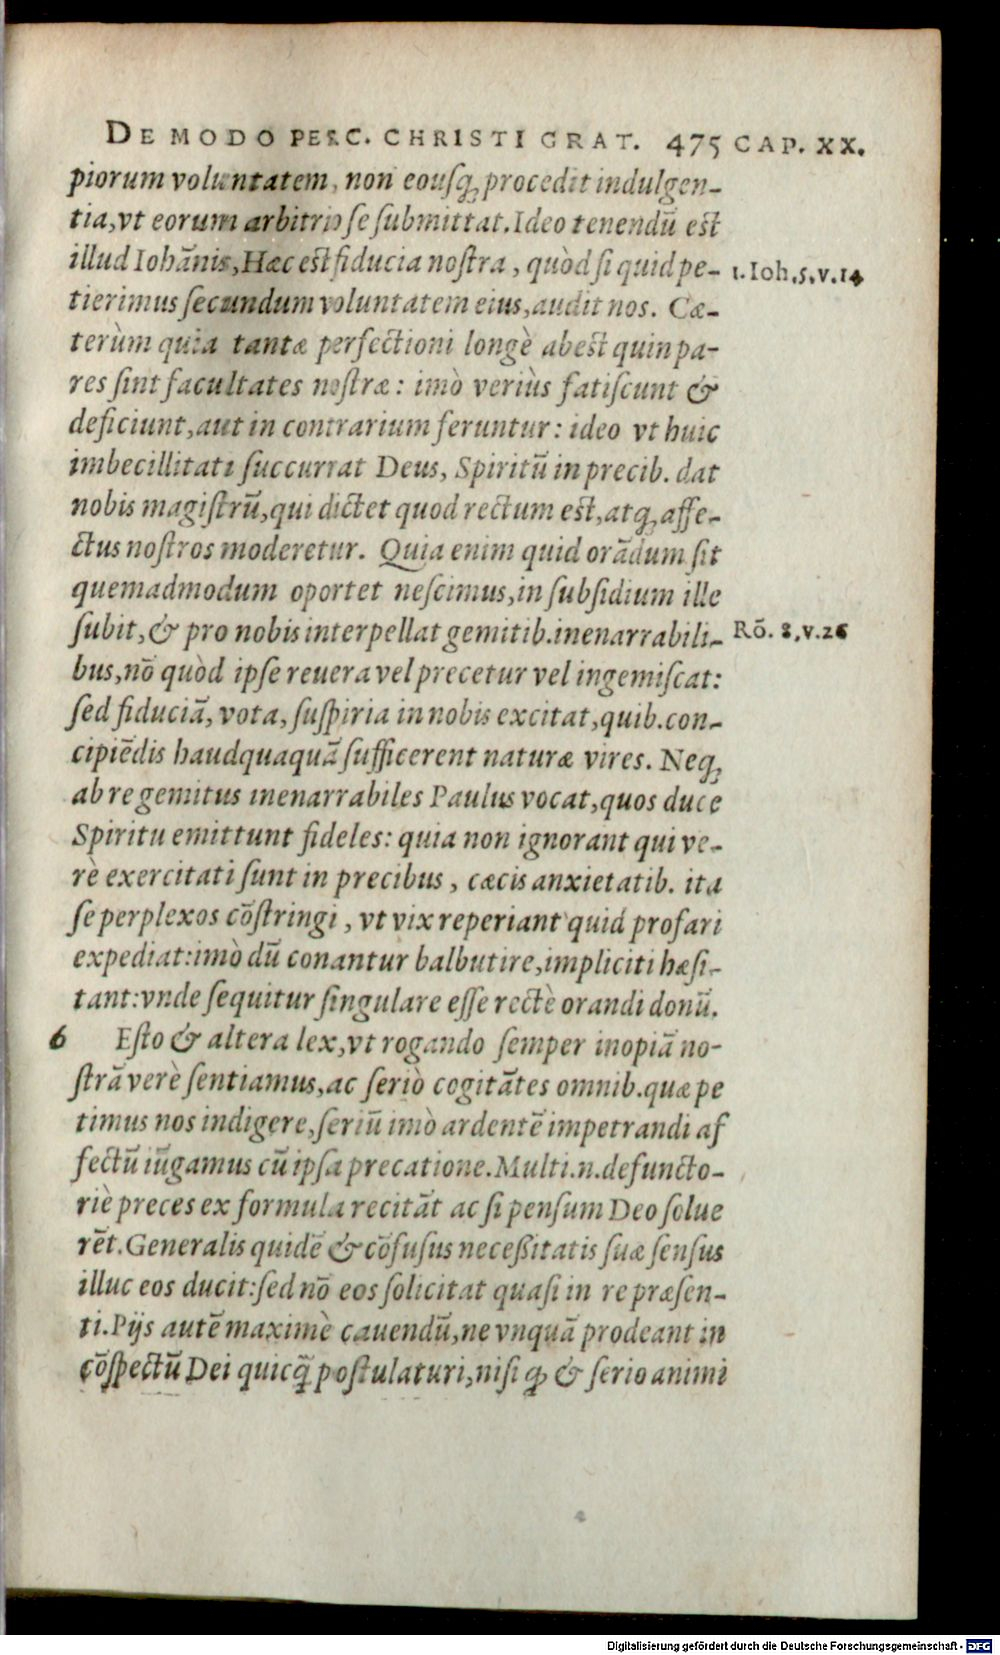 DE MODO PERC. CHRISTI GRAT. 475 CAP. XX.
piorum voluntatem, non eousq; procedit indulgen-
tia, vt eorum arbitrio se submittat. Ideo tenendū est
illud Iohānis, Hæc est fiducia nostra, quòd si quid pe- 1. Ioh. 5. v. 14
tierimus secundum voluntatem eius, audit nos. Cæ-
terùm quia tantæ perfectioni longè abest quin pa-
res sint facultates nostræ: imò veriùs fatiscunt &
deficiunt, aut in contrarium feruntur: ideo vt huic
imbecillitati succurrat Deus, Spiritū in precib. dat
nobis magistrū, qui dictet quod rectum est, atq; affe-
ctus nostros moderetur. Quia enim quid orādum sit
quemadmodum oportet nescimus, in subsidium ille
subit, & pro nobis interpellat gemitib. inenarrabili- Rō. 8. v. 26
bus, nō quòd ipse reuera vel precetur vel ingemiscat:
sed fiduciā, vota, suspiria in nobis excitat, quib. con-
cipiēdis haudquaquā sufficerent naturæ vires. Neq;
ab re gemitus inenarrabiles Paulus vocat, quos duce
Spiritu emittunt fideles: quia non ignorant qui ve-
rè exercitati sunt in precibus, cæcis anxietatib. ita
se perplexos cōstringi, vt vix reperiant quid profari
expediat: imò dū conantur balbutire, impliciti hæsi-
tant: vnde sequitur singulare esse rectè orandi donū.
6 Esto & altera lex, vt rogando semper inopiā no-
strā verè sentiamus, ac seriò cogitātes omnib. quæ pe
timus nos indigere, seriū imò ardentē impetrandi af
fectū iūgamus cū ipsa precatione. Multi .n. defuncto-
riè preces ex formula recitāt ac si pensum Deo solue
rēt. Generalis quidē & cōfusus necessitatis suæ sensus
illuc eos ducit: sed nō eos solicitat quasi in re præsen-
ti. Pijs autē maximè cauendū, ne vnquā prodeant in
cōspectū Dei quicq̃ postulaturi, nisi q; & serio animi
Digitalisierung gefördert durch die Deutsche Forschungsgemeinschaft - DFG